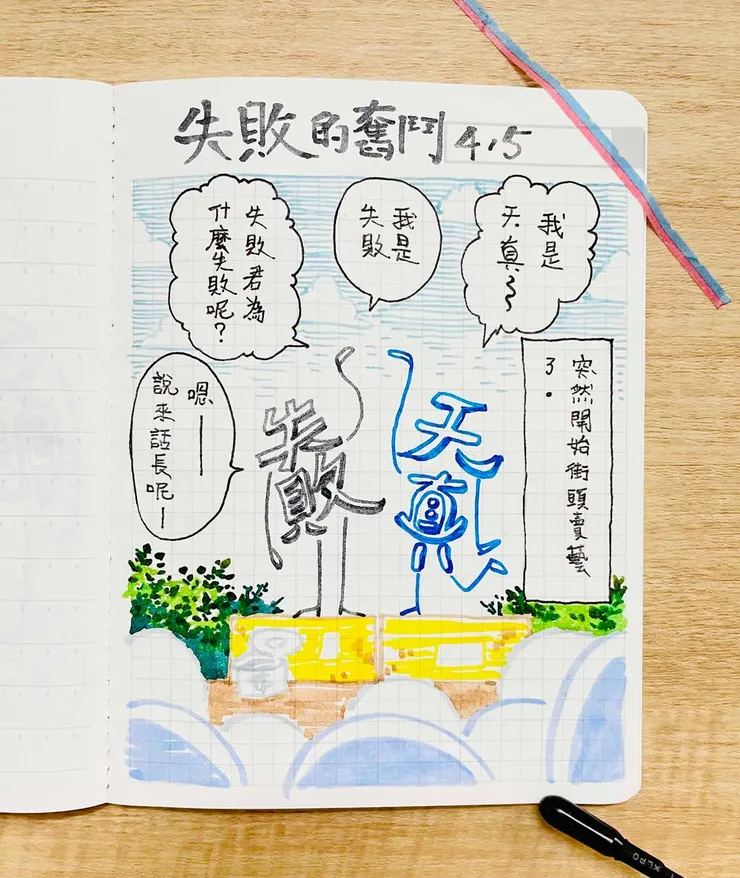 失敗的奮鬥 4.5
我是
天真~
我是
失敗
失敗君為
什麼失敗呢？
突然開始街頭賣藝
了。
嗯——
說來話長呢—
天真
失敗